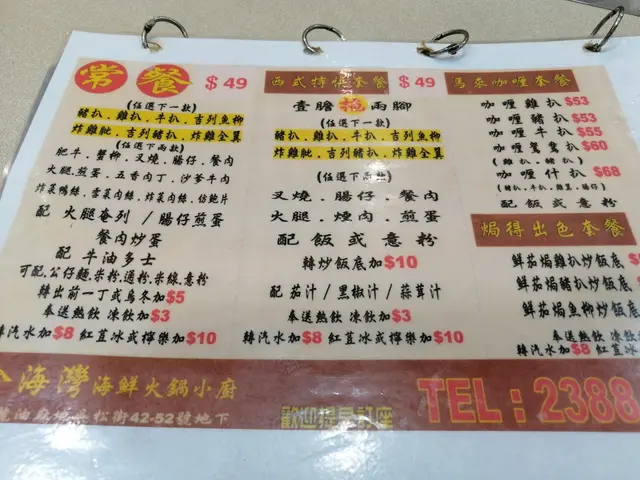 常餐 $49
(任選下一款)
豬扒.雞扒.牛扒.吉列魚柳
炸雞髀.吉列豬扒.炸雞全翼
(任選下兩款)
肥牛.蟹柳.叉燒.腸仔.餐肉
火腿.煎蛋.五香肉丁.沙爹牛肉
炸菜鴨絲.雪菜肉絲.炸菜肉絲.仿鮑片
配 火腿奄列 / 腸仔煎蛋
餐肉炒蛋
配 牛油多士
可配.公仔麵.米粉.通粉.米線.意粉
轉出前一丁或烏冬加$5
奉送熱飲 凍飲加$3
轉汽水加$8 紅荳冰或檸樂加$10
西式特惠套餐 $49
壹膽拖兩腳
(任選下一款)
豬扒.雞扒.牛扒.吉列魚柳
炸雞髀.吉列豬扒.炸雞全翼
(任選下兩款)
叉燒.腸仔.餐肉
火腿.煙肉.煎蛋
配 飯 或 意 粉
轉炒飯底加$10
配 茄汁 / 黑椒汁 / 蒜茸汁
奉送熱飲 凍飲加$3
轉汽水加$8 紅荳冰或檸樂加$10
馬來咖喱套餐
咖喱雞扒$53
咖喱豬扒$53
咖喱牛扒$55
咖喱鴛鴦扒$60
(雞扒.豬扒)
咖喱什扒$68
(豬扒.牛扒.雞翼.腸仔)
配 飯 或 意 粉
焗得出色套餐
鮮茄焗雞扒炒飯底
鮮茄焗豬扒炒飯底
鮮茄焗魚柳炒飯底
奉送熱飲 凍飲加$3
轉汽水加$8 紅荳冰
海灣海鮮火鍋小廚
油麻地吳松街42-52號地下
歡迎提早訂座
TEL : 2388